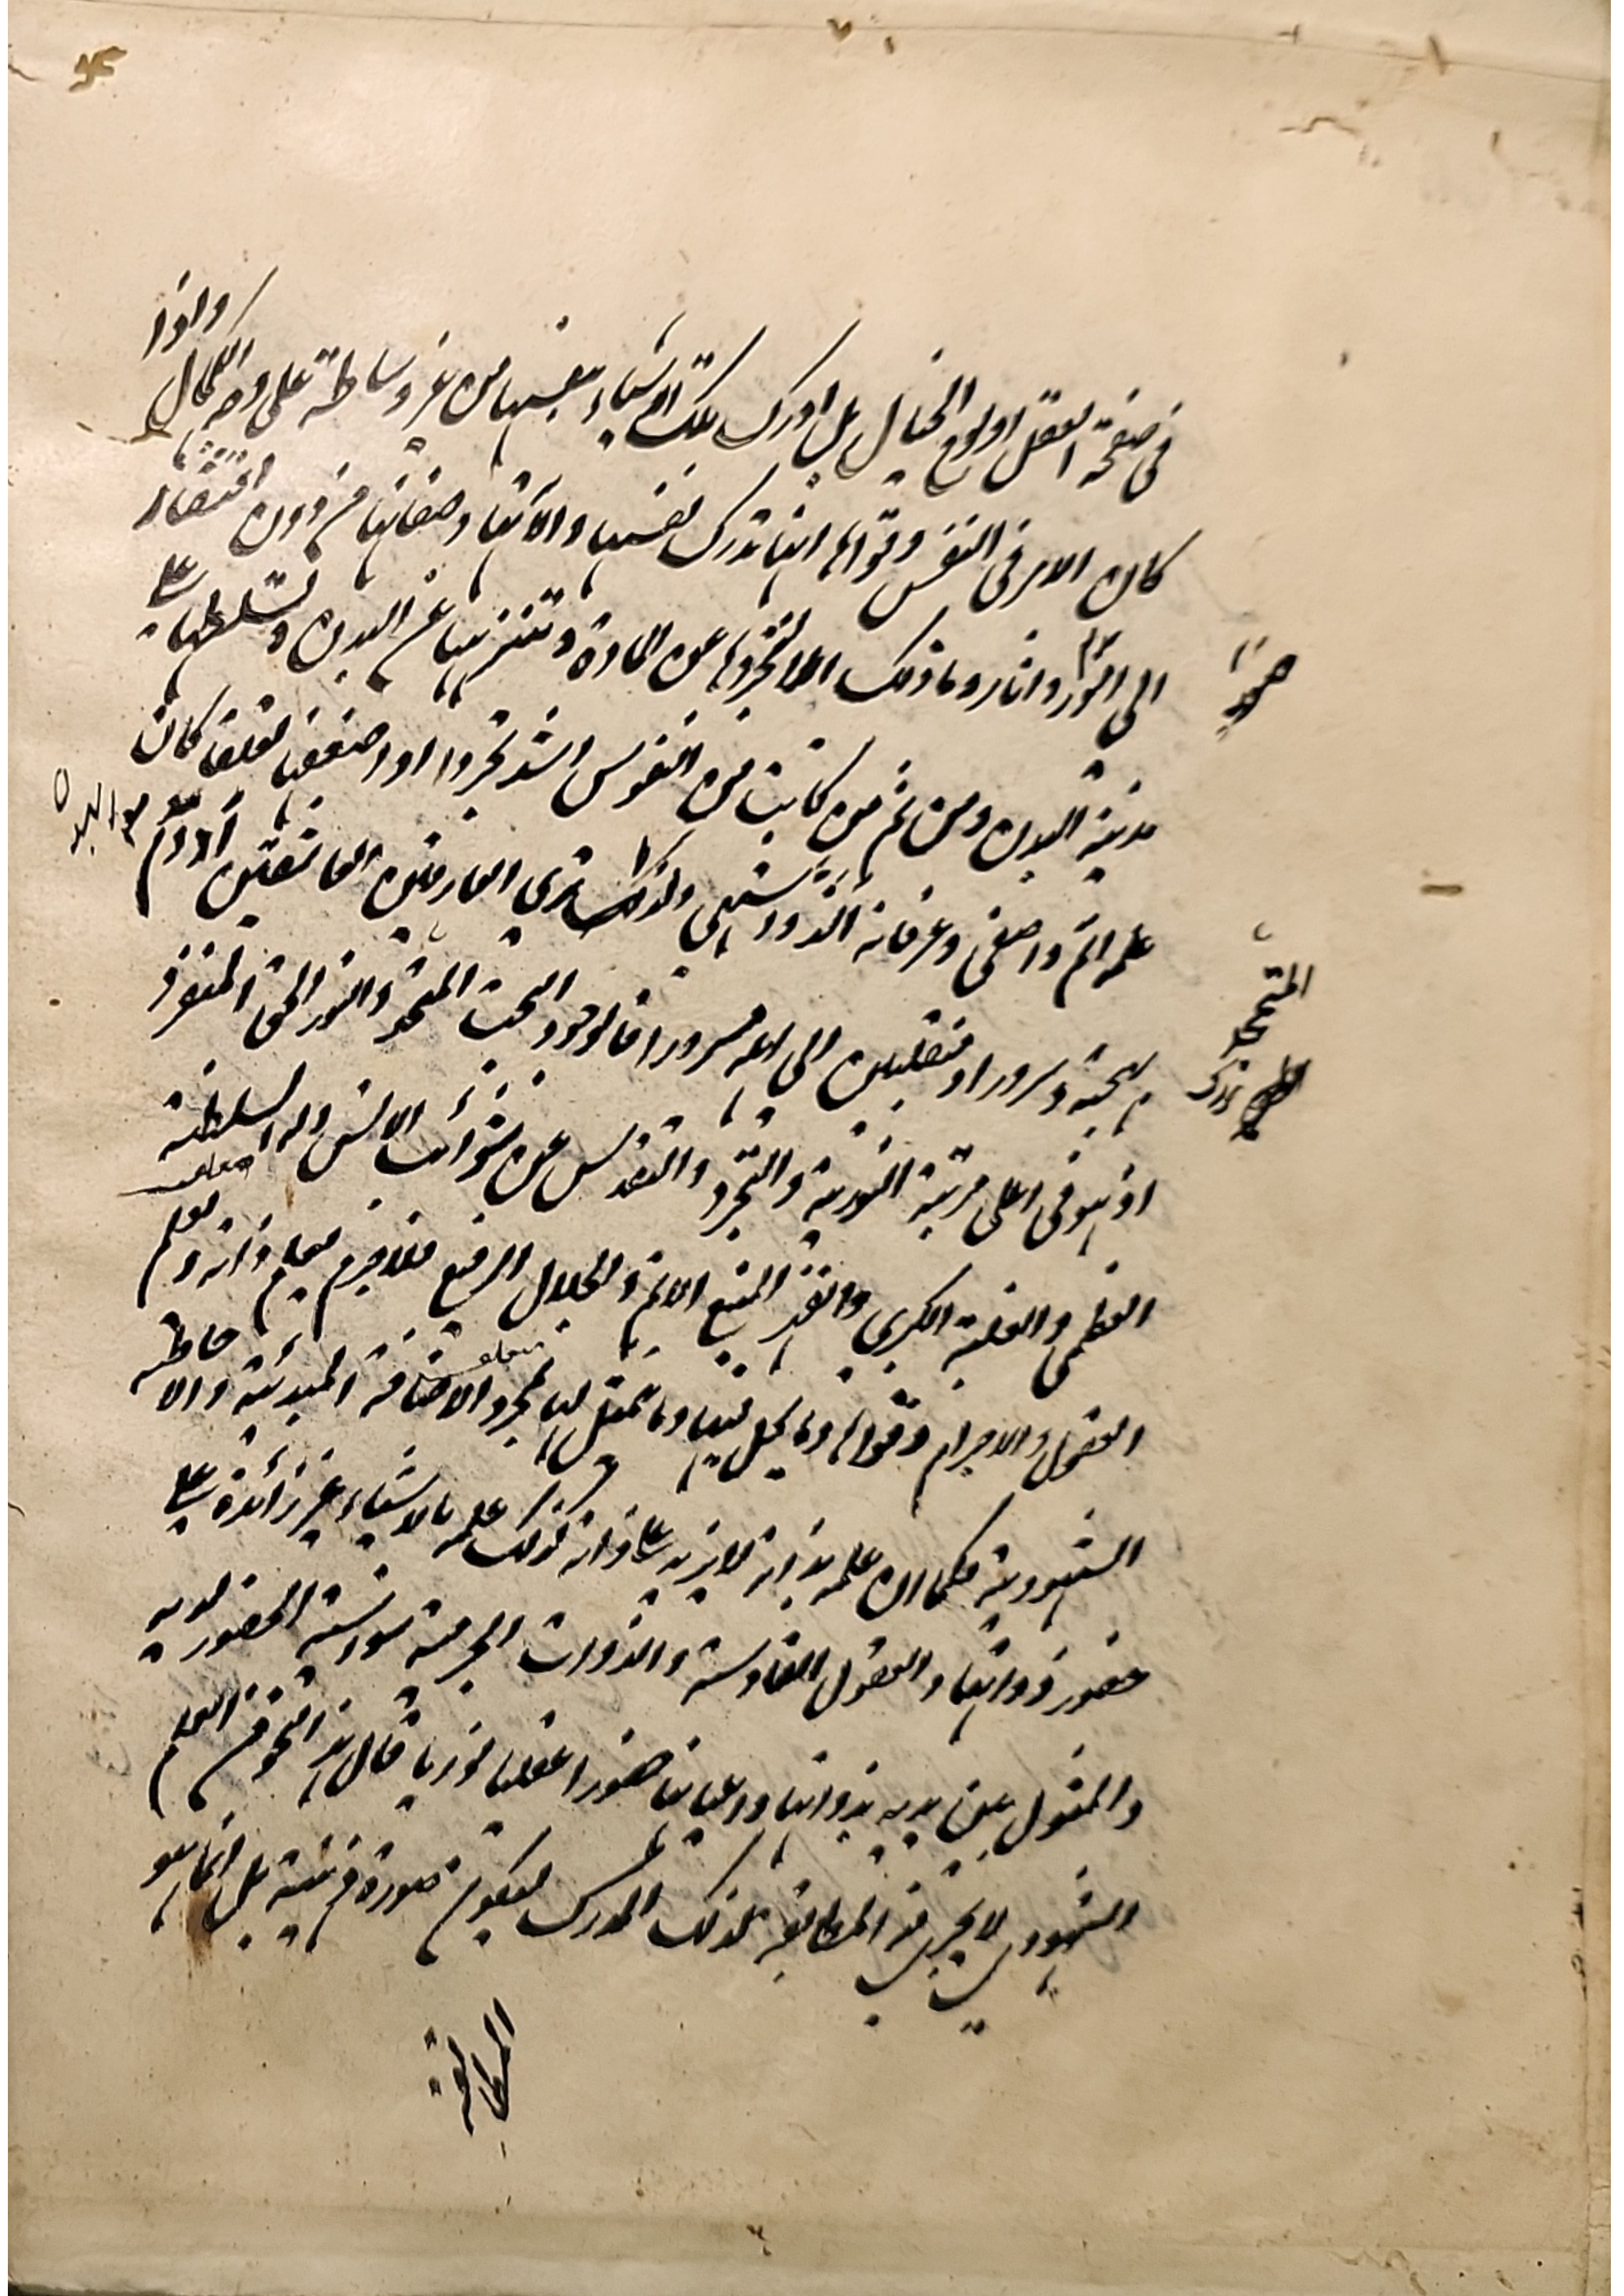 في صفحة العقل او لوح الخيال بل ادرك تلك الاشياء بنفسها من غير وساطة على وجه الكمال واذا
كان الامر في النفس وقواها انها تدرك نفسها والاتها وصفاتها من دون افتقار
الى امور واثار وما ذلك الا لتجردها عن المادة وتنزهها عن البدن وتسلطها على
صور
مدينة البدن ومن ثم من كانت من النفوس اشد تجردا او اضعفها تعلقا كان
بالبدن
علمه اتم واصفى وعرفانه الذ واشهى ولذلك ترى العارفين العاشقين ادوم
بهجة وسرورا ومنقلبين الى اهله مسرورا فالوجود البحت المتمجد والنور الحق المتعزز
المتمجد
اذ هو في اعلى مرتبة النورية والتجرد والتقدس عن شوائب الانس وله السلطنة
العظمى والغلبة الكبرى والقهر المنيع الاتم والجلال الرفيع فلا جرم يعلم ذاته ويعلم
العقول والاجرام وقواها وما يحل فيها وما تمثل لها بمجرد الاضافة المبدئية والاحاطة
الشهودية فكما ان علمه بذاته لا يزيد على ذاته كذلك علمه بالاشياء غير زائدة على
حضور ذواتها والعقول القادسة والذوات الجرمية سواسية الحضور لديه
والمثول بين يديه بذواتها واعيانها حضورا عقليا نوريا قال هذا النحو من العلم
الشهودي لا يجري فيه المطابقة لذلك المدرك ليكون صورة ذهنية بل انما هو
المطابقة